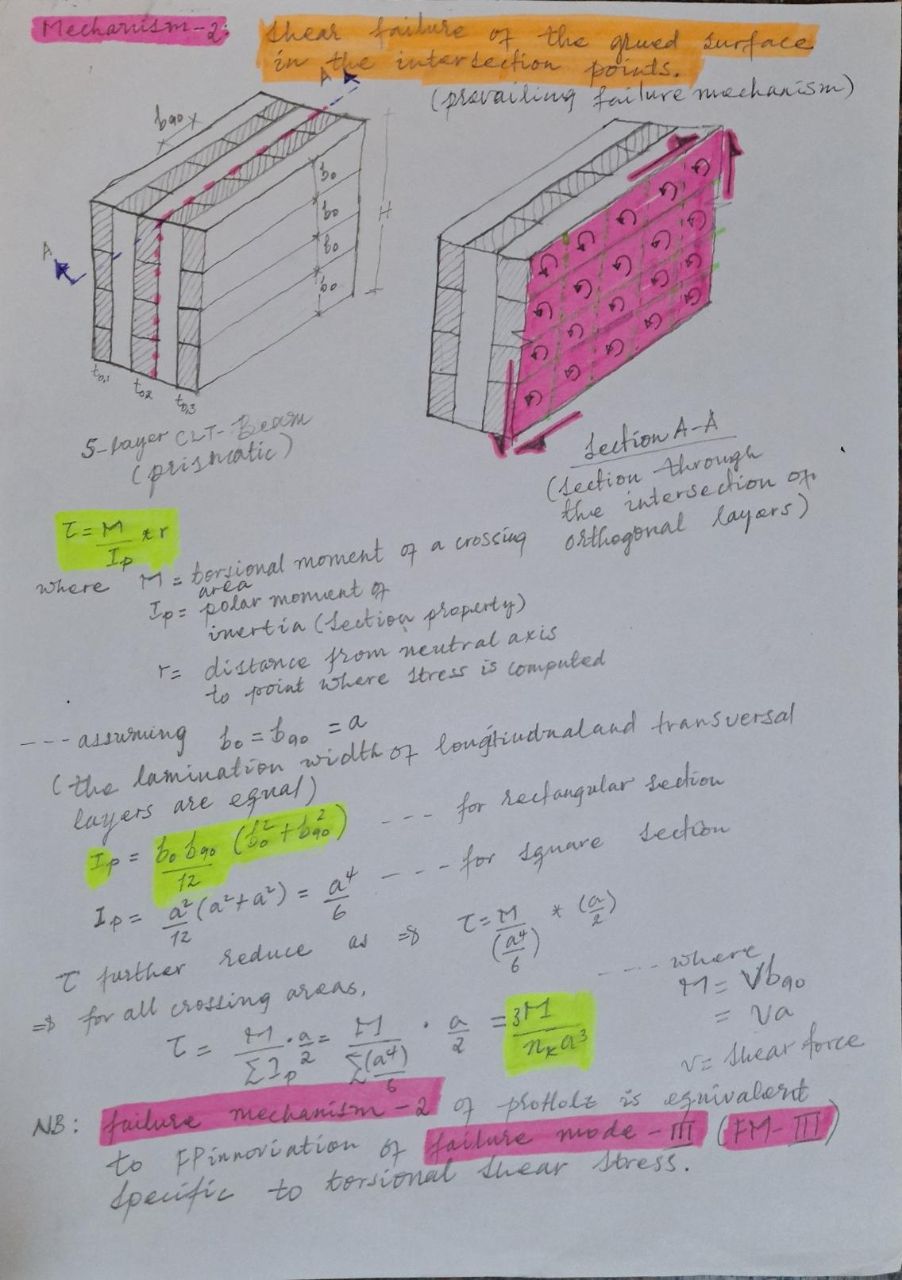 Mechanism-2: Shear failure of the glued surface
in the intersection points.
(prevailing failure mechanism)
A
b90
b0
b0
b0
b0
H
A
t0,1
t0,2
t0,3
5-Layer CLT-Beam
(prismatic)
Section A-A
(Section through
the intersection of
orthogonal layers)
τ = M/Ip * r
where M = torsional moment of a crossing
area
Ip = polar moment of
inertia (Section property)
r = distance from neutral axis
to point where stress is computed
--- assuming b0 = b90 = a
(the lamination width of longitudinal and transversal
layers are equal)
Ip = b0 b90/12 (b0² + b90²) --- for rectangular section
Ip = a²/12 (a² + a²) = a⁴/6 ---- for square section
τ further reduce as ⇒ τ = M/(a⁴/6) * (a/2)
⇒ for all crossing areas,
τ = M/ΣIp · a/2 = M/Σ(a⁴/6) · a/2 = 3M/nk a³
---- where
M = Vb90
= Va
V = shear force
NB: failure mechanism-2 of proHolz is equivalent
to FPinnoviation of failure mode-III (FM-III)
specific to torsional shear stress.